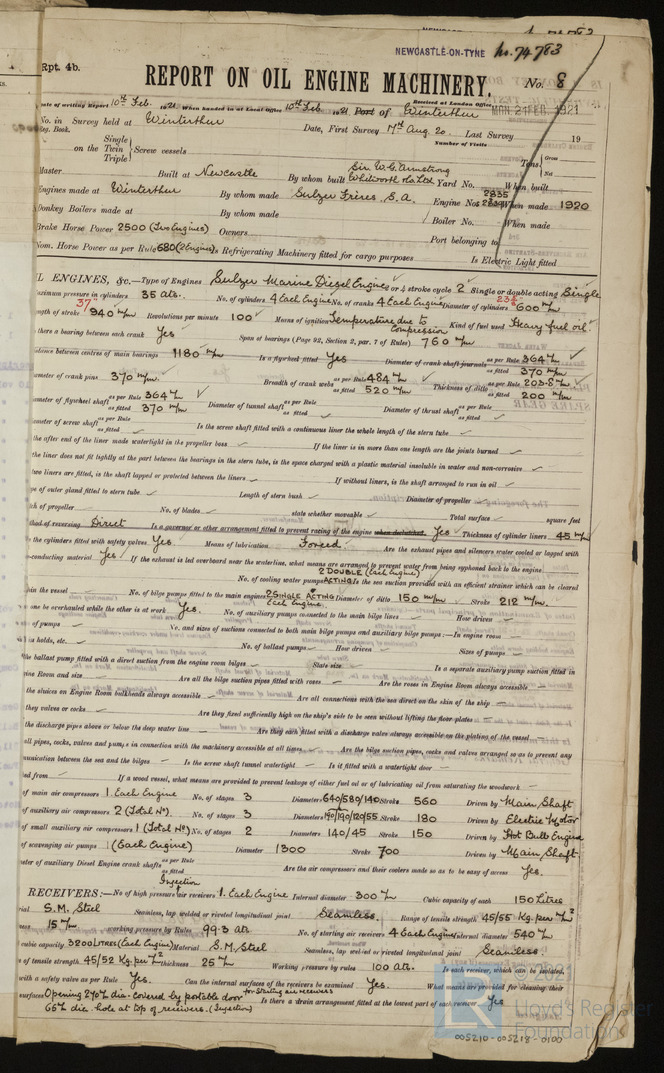 NEWCASTLE-ON-TYNE No. 74783
Rpt. 4b.
REPORT ON OIL ENGINE MACHINERY. No. 8
Received at London Office MON 21 FEB 1921
ate of writing Report 10th Feb. 1921 When handed in at Local Office 10th Feb. 1921 Port of Winterthur
No. in Survey held at Winterthur Date, First Survey 17th Aug. 20. Last Survey 19
Reg. Book. Number of Visits
on the Single Twin Triple Screw vessels Tons Gross Net
Master Built at Newcastle By whom built Sir W. G. Armstrong Whitworth & Co Ltd Yard No. When built
Engines made at Winterthur By whom made Sulzer Frères S.A. Engine Nos 2835 When made 1920
Donkey Boilers made at By whom made Boiler No. When made
Brake Horse Power 2500 (Two Engines) Owners Port belonging to
Nom. Horse Power as per Rule 680 (2 Engines) Is Refrigerating Machinery fitted for cargo purposes Is Electric Light fitted
L ENGINES, &c.—Type of Engines Sulzer Marine Diesel Engines 2 or 4 stroke cycle 2 Single or double acting Single
aximum pressure in cylinders 35 ats. No. of cylinders 4 Each Engine No. of cranks 4 Each Engine Diameter of cylinders 600 m/m
ength of stroke 940 m/m Revolutions per minute 100 Means of ignition Temperature due to Compression Kind of fuel used Heavy fuel oil
there a bearing between each crank Yes Span of bearings (Page 92, Section 2, par. 7 of Rules) 760 m/m
istance between centres of main bearings 1180 m/m Is a flywheel fitted Yes Diameter of crank shaft journals as per Rule 364 as fitted 370 m/m
iameter of crank pins 370 m/m. Breadth of crank webs as per Rule 484 as fitted 520 m/m Thickness of ditto as per Rule 203.8 as fitted 200 m/m
ameter of flywheel shaft as per Rule 364 as fitted 370 m/m Diameter of tunnel shaft as per Rule as fitted Diameter of thrust shaft as per Rule as fitted
ameter of screw shaft as per Rule as fitted Is the screw shaft fitted with a continuous liner the whole length of the stern tube
the after end of the liner made watertight in the propeller boss If the liner is in more than one length are the joints burned
the liner does not fit tightly at the part between the bearings in the stern tube, is the space charged with a plastic material insoluble in water and non-corrosive
two liners are fitted, is the shaft lapped or protected between the liners If without liners, is the shaft arranged to run in oil
pe of outer gland fitted to stern tube Length of stern bush Diameter of propeller
tch of propeller No. of blades state whether moveable Total surface square feet
thod of reversing Direct Is a governor or other arrangement fitted to prevent racing of the engine when declutched Yes Thickness of cylinder liners 45 m/m
the cylinders fitted with safety valves Yes Means of lubrication Forced. Are the exhaust pipes and silencers water cooled or lagged with
-conducting material Yes If the exhaust is led overboard near the waterline, what means are arranged to prevent water from being syphoned back to the engine
No. of cooling water pumps 2 DOUBLE ACTING (Each Engine) Is the sea suction provided with an efficient strainer which can be cleared
hin the vessel No. of bilge pumps fitted to the main engines 2 SINGLE ACTING Each Engine Diameter of ditto 150 m/m Stroke 212 m/m.
n one be overhauled while the other is at work Yes. No. of auxiliary pumps connected to the main bilge lines How driven
of pumps No. and sizes of suctions connected to both main bilge pumps and auxiliary bilge pumps:—In engine room
l in holds, etc. No. of ballast pumps How driven Sizes of pumps
the ballast pump fitted with a direct suction from the engine room bilges State size Is a separate auxiliary pump suction fitted in
ine Room and size Are all the bilge suction pipes fitted with roses Are the roses in Engine Room always accessible
the sluices on Engine Room bulkheads always accessible Are all connections with the sea direct on the skin of the ship
they valves or cocks Are they fixed sufficiently high on the ship's side to be seen without lifting the floor plates
the discharge pipes above or below the deep water line Are they each fitted with a discharge valve always accessible on the plating of the vessel
all pipes, cocks, valves and pumps in connection with the machinery accessible at all times Are the bilge suction pipes, cocks and valves arranged so as to prevent any
munication between the sea and the bilges Is the screw shaft tunnel watertight Is it fitted with a watertight door
ed from If a wood vessel, what means are provided to prevent leakage of either fuel oil or of lubricating oil from saturating the woodwork
of main air compressors 1 Each Engine No. of stages 3 Diameters 640/580/140 Stroke 560 Driven by Main Shaft
of auxiliary air compressors 2 (Total No) No. of stages 3 Diameters Stroke 180 Driven by Electric Motor
of small auxiliary air compressors 1 (Total No) No. of stages 2 Diameters 140/45 Stroke 150 Driven by Hot Bulb Engine
of scavenging air pumps 1 (Each Engine) Diameter 1300 Stroke 700 Driven by Main Shaft.
neter of auxiliary Diesel Engine crank shafts as per Rule as fitted Are the air compressors and their coolers made so as to be easy of access Yes.
RECEIVERS:—No of high pressure Injection air receivers 1. Each Engine Internal diameter 300 m/m Cubic capacity of each 150 Litres
rial S.M. Steel Seamless, lap welded or riveted longitudinal joint Seamless. Range of tensile strength 45/55 Kg. per m/m²
ness 15 m/m working pressure by Rules 99.3 ats No. of starting air receivers 4 Each Engine Internal diameter 540 m/m
cubic capacity 3200 Litres (Each Engine) Material S.M. Steel Seamless, lap welded or riveted longitudinal joint Seamless
e of tensile strength 45/52 Kg. per m/m² thickness 25 m/m Working pressure by rules 100 Ats. Is each receiver, which can be isolated,
with a safety valve as per Rule Yes. Can the internal surfaces of the receivers be examined Yes. What means are provided for cleaning their
surfaces Opening 270 m/m dia. covered by portable door for starting air receivers Is there a drain arrangement fitted at the lowest part of each receiver Yes
65 m/m dia. hole at top of receivers. (Injection)
© 2021
Lloyd's Register
Foundation
005210-005218-0100